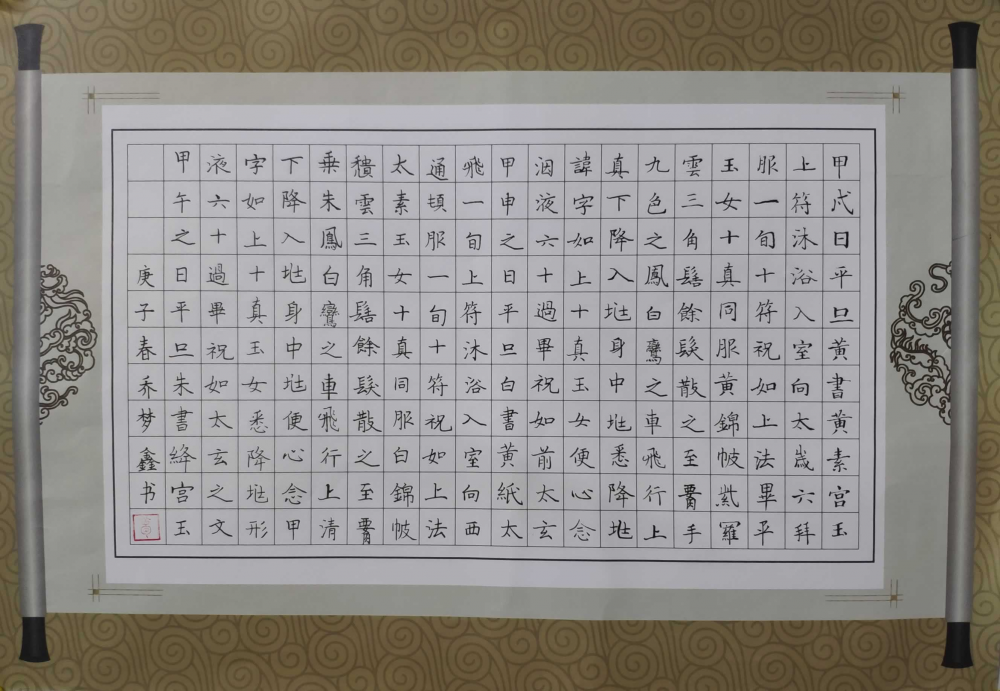 甲戌日平旦黄書黄素宫玉
上符沐浴入室向太歲六拜
服一旬十符祝如上法畢平
玉女十真同服黄錦帔紫羅
雲三角髻餘髮散之至腰手
九色之鳳白鸞之車飛行上
真下降入兆身中兆悉降兆
諱字如上十真玉女便心念
洇液六十過畢祝如前太玄
甲申之日平旦白書黄紙太
飛一旬上符沐浴入室向西
通頓服一旬十符祝如上法
太素玉女十真同服白錦帔
穨雲三角髻餘髮散之至腰
乗朱鳳白鸞之車飛行上清
下降入兆身中兆便心念甲
字如上十真玉女悉降兆形
液六十過畢祝如太玄之文
甲午之日平旦朱書絳宫玉
庚子春乔梦鑫书